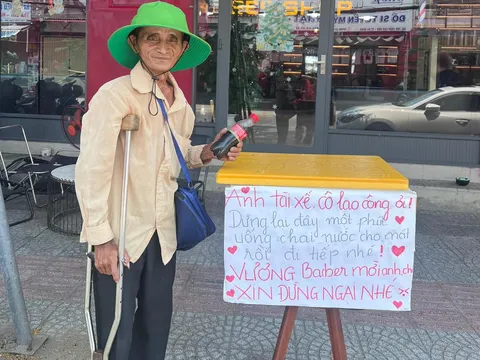 SHOP
Anh tài xế, cô lao công ơi!
Dừng lại đây một phút
uống chai nước cho mát
rồi đi tiếp nhé!
VƯƠNG Barber mời anh, chị
XIN ĐỪNG NGẠI NHÉ